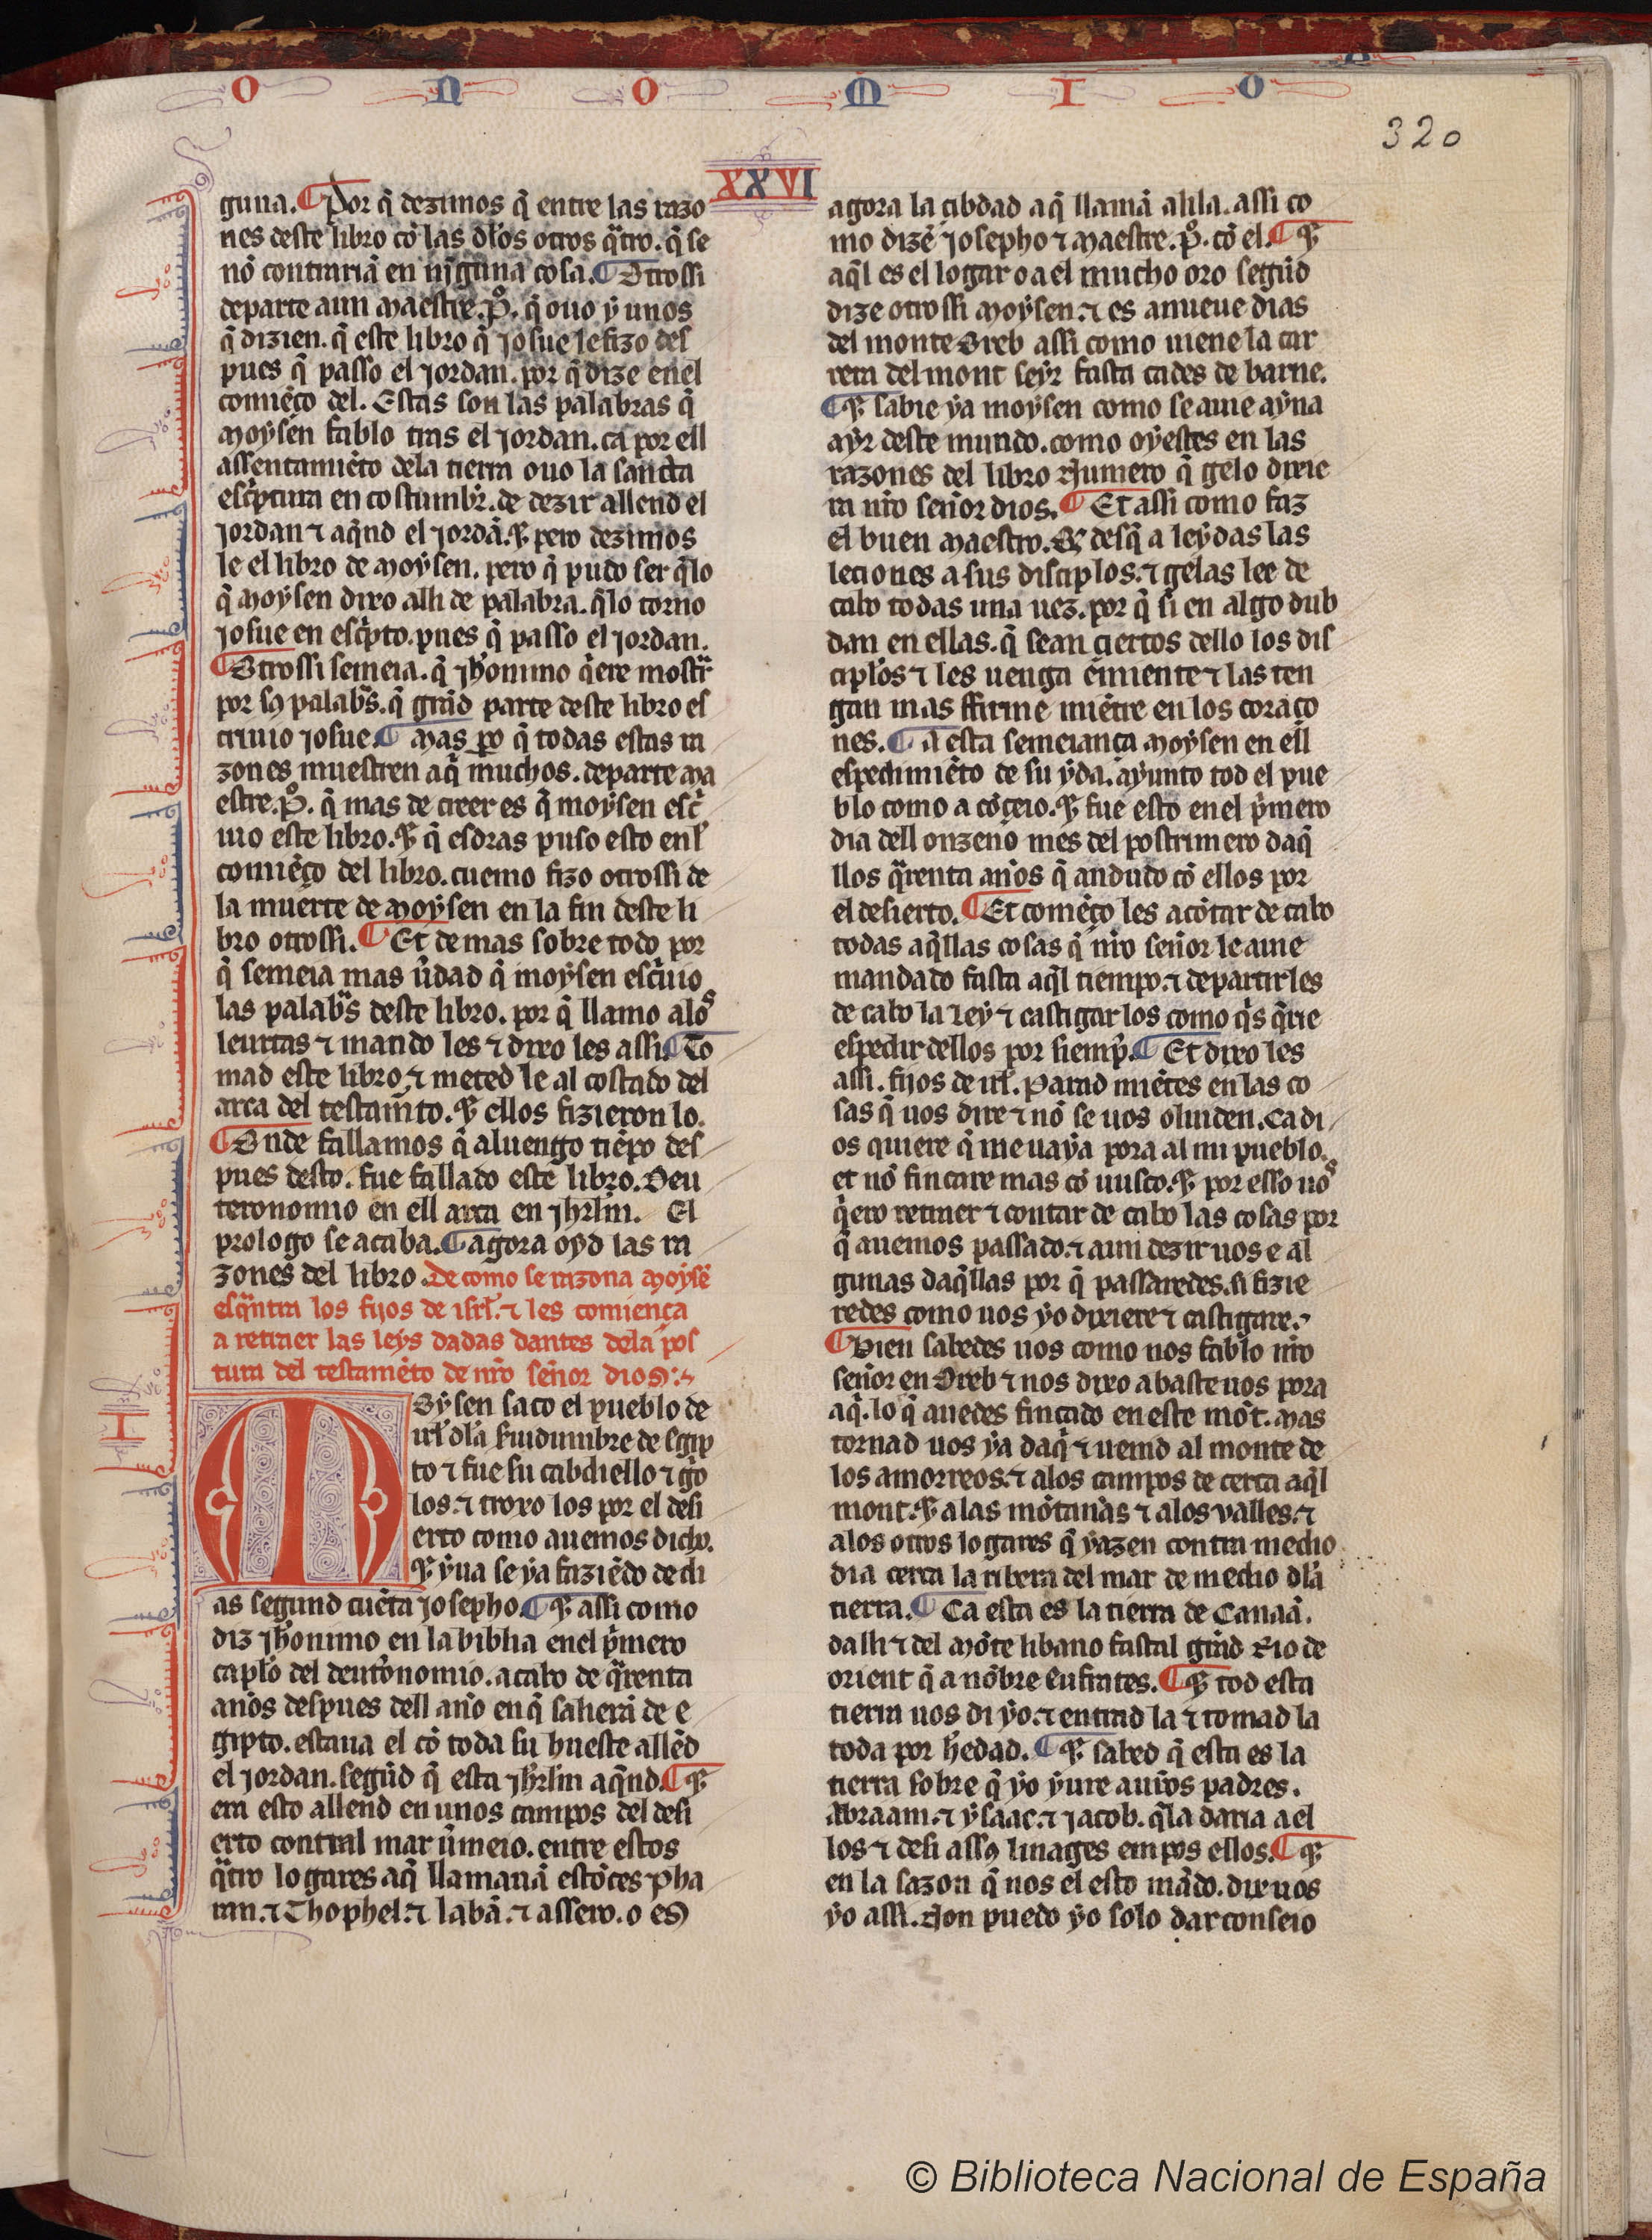 O N O M I O
320
XXVI
guna. ¶ Por q̃ dezimos q̃ entre las razo
nes deste libro cõ las dłos otros q̃tro. q̃ se
nõ contrariã en ninguna cosa. ¶ Otrossi
departe aun Maestre .P̊. q̃ ouo ẏ unos
q̃ dizien. q̃ este libro q̃ Josue le fizo des
pues q̃ passo el Jordan. por q̃ dize enel
comiẽço del. Estas son las palabras q̃
Moẏsen fablo tras el Jordan. ca por ell
assentamiẽto dela tierra ouo la sancta
esc̃ptura en costumbr̃. de dezir allend el
Jordan ⁊ aq̃nd el Jordã. ⁊ pero dezimos
le el libro de Moẏsen. pero q̃ pudo ser q̃lo
q̃ Moẏsen dixo alli de palabra. q̃lo torno
Josue en esc̃pto. pues q̃ passo el Jordan.
¶ Otrossi semeia. q̃ Jh̃onimo q̃ere mostr̃
por sꝯ palabr̃s. q̃ grãd parte deste libro es
criuio Josue. ¶ Mas ꝑo q̃ todas estas ra
zones muestren aq̃ muchos. departe Ma
estre .P̊. q̃ mas de creer es q̃ moẏsen esc̃
uio este libro. ⁊ q̃ esdras puso esto enł
comiẽço del libro. cuemo fizo otrossi de
la muerte de Moẏsen en la fin deste li
bro otrossi. ¶ Et demas sobre todo por
q̃ semeia mas ũdad q̃ moẏsen esc̃uio
las palabr̃s deste libro. por q̃ llamo alos
leuitas ⁊ mando les ⁊ dixo les assi. ¶ To
mad este libro. ⁊ meted le al costado del
arca del testam̃to. ⁊ ellos fizieron lo.
¶ Onde fallamos q̃ aluengo tiẽpo des
pues desto. fue fallado este libro. Deu
teronomio en ell arca en Jhr̃lm. El
prologo se acaba. ¶ agora oẏd las ra
zones del libro. De como se razona Moẏsẽ
esq̃ntra los fijos de isrł. ⁊ les comiença
a retraer las leẏs dadas dantes dela pos
tura del testamẽto de nr̃o señor dios:~
H
MOẏsen saco el pueblo de
irł dła ſuidumbre de Egip
to ⁊ fue su cabdiello ⁊ g̃o
los. ⁊ troxo los por el desi
erto como auemos dicho.
⁊ ẏua se ẏa faziẽdo de di
as segund cuẽta Josepho. ¶ ⁊ assi como
diz Jh̃onimo en la biblia enel p̃mero
capł̃o del deut̃onomio. a cabo de q̃renta
años despues dell año en q̃ salierã de e
gipto. estaua el cõ toda su hueste allẽd
el Jordan. segũd q̃ esta Jhr̃lm aq̃nd. ¶ ⁊
era esto allend en unos campos del desi
erto contral mar ũmeio. entre estos
q̃tro logares aq̃ llamauã estõces Pha
ran. ⁊ Thophel. ⁊ labã. ⁊ assero. o es
agora la cibdad aq̃ llamã ahila. assi co
mo dizẽ Josepho ⁊ Maestre .P̊. cõ el. ¶ ⁊
aq̃l es el logar o a el mucho oro segũd
dize otrossi Moẏsen. ⁊ es a nueue dias
del monte Oreb assi como uiene la car
rera del mont seẏr fasta cades de barne.
¶ ⁊ sabie ẏa moẏsen como se auie aẏna
aẏr deste mundo. como oẏestes en las
razones del libro Numero q̃ gelo dixie
ra nr̃o señor dios. ¶ Et assi como faz
el buen Maestro. Q̃ desq̃ a leẏdas las
leciones a sus disciplos. ⁊ gelas lee de
cabo todas una uez. por q̃ si en algo dub
dan en ellas. q̃ sean ciertos dello los dis
ciplos ⁊ les uenga emiente ⁊ las ten
gan mas ffirme miẽtre en los coraço
nes. ¶ a esta semeiança Moẏsen en ell
espedimiẽto de su ẏda. aẏunto tod el pue
blo como a cõçeio. ⁊ fue esto enel p̃mero
dia dell onzeno mes del postrimero daq̃
llos q̃renta años q̃ andudo cõ ellos por
el desierto. ¶ Et comẽço les acõtar de cabo
todas aq̃llas cosas q̃ nr̃o señor le auie
mandado fasta aq̃l tiempo. ⁊ departir les
de cabo la Ley ⁊ castigar los como q̃s q̃rie
espedir dellos por siemp̃. ¶ Et dixo les
assi. fijos de irł. Parad miẽtes en las co
sas q̃ uos dire ⁊ nõ se uos oluiden. Ca di
os quiere q̃ me uaẏa pora al mi pueblo.
et nõ fincare mas cõ uusco. ⁊ por esso uos
q̃ero retraer ⁊ contar de cabo las cosas por
q̃ auemos passado. ⁊ aun dezir uos e al
gunas daq̃llas por q̃ passaredes. si fizie
redes como uos ẏo dixiere ⁊ castigare.
¶ Bien sabedes uos como nos fablo nr̃o
señor en Oreb ⁊ nos dixo abaste uos pora
aq̃. lo q̃ auedes fincado en este mõt. Mas
tornad uos ẏa daq̃ ⁊ uenid al monte de
los amorreos. ⁊ alos campos de cerca aq̃l
mont. ⁊ a las mõtañas ⁊ alos valles. ⁊
alos otros logares q̃ ẏazen contra medio
dia cerca la ribera del mar de medio dła
tierra. ¶ Ca esta es la tierra de Canaã.
dalli ⁊ del Mõte libano fastal grãd Rio de
orient q̃ a nõbre Eufrates. ¶ ⁊ tod esta
tierra uos di ẏo. ⁊ entrad la ⁊ tomad la
toda por h̃edad. ¶ ⁊ sabed q̃ esta es la
tierra sobre q̃ ẏo ẏure a ur̃os padres.
Abraam. ⁊ ẏsaac. ⁊ Jacob. q̃la daria a el
los ⁊ desi assꝯ linages empos ellos. ¶ ⁊
en la sazon q̃ nos el esto mãdo. dix uos
ẏo assi. Non puedo ẏo solo dar conseio
© Biblioteca Nacional de España